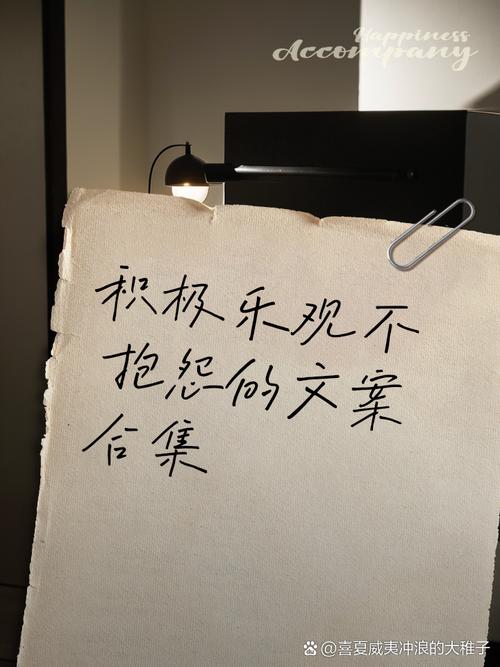 Happiness
Accompany
积极乐观不
抱怨的文案
合集
@喜夏威夷冲浪的大稚子